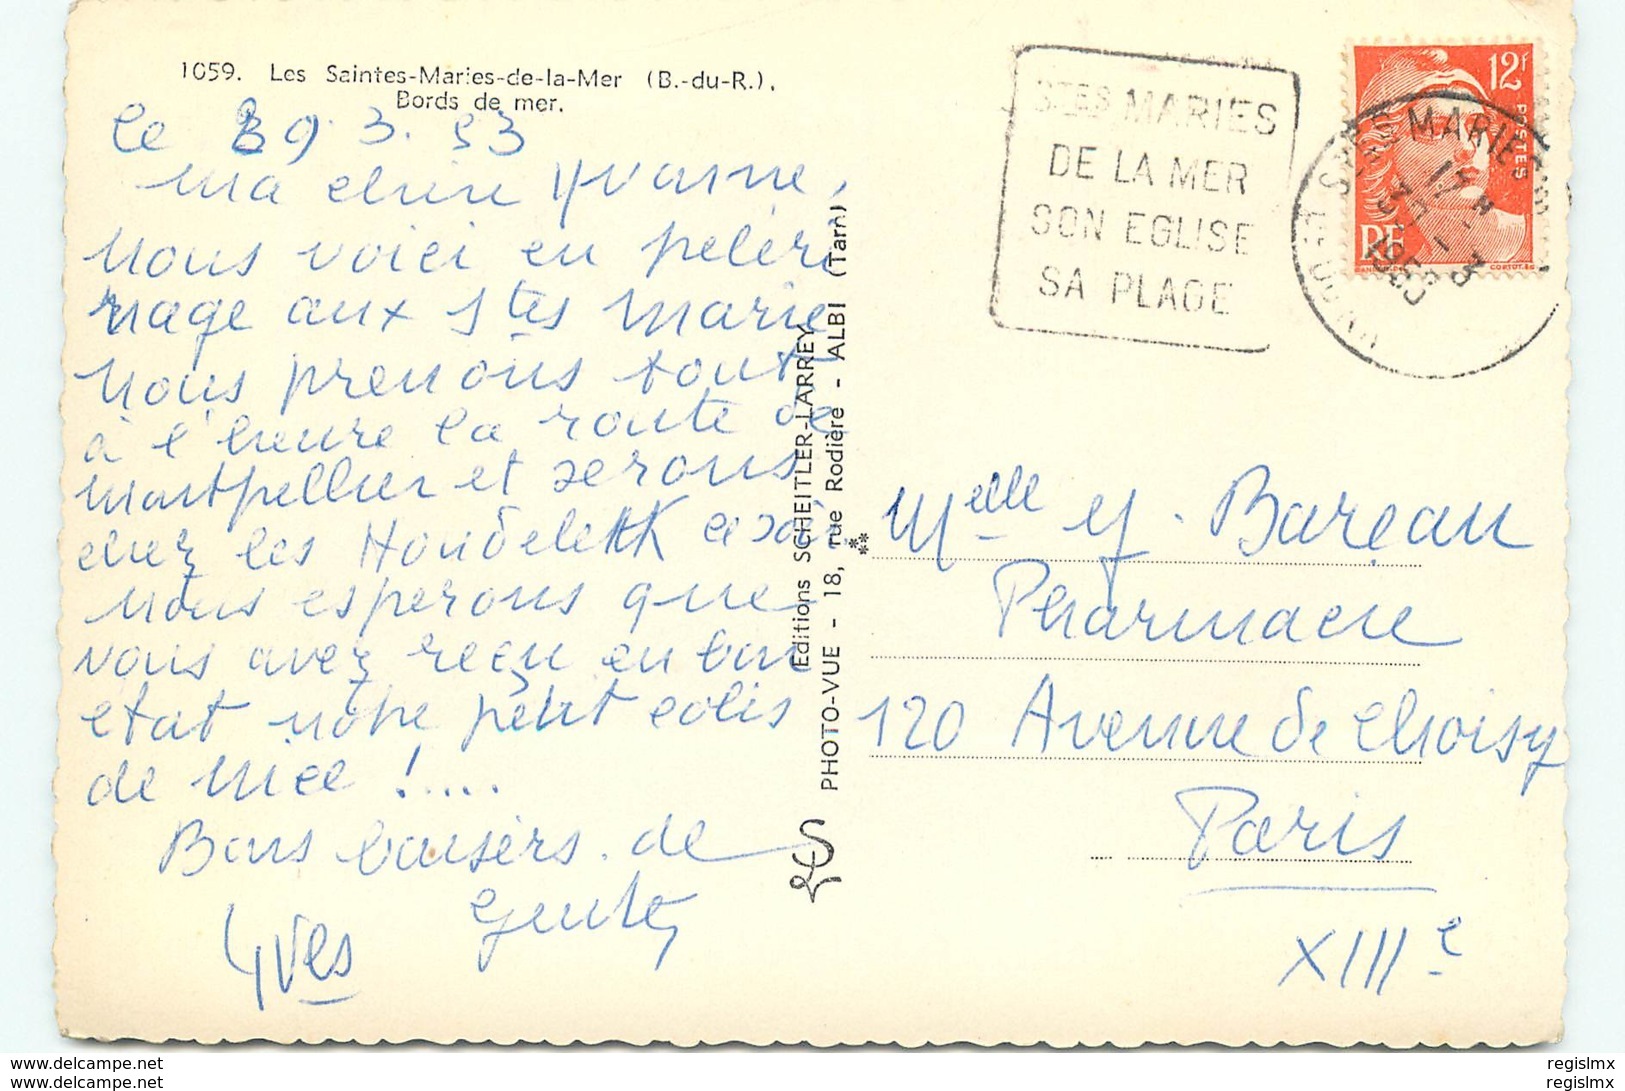 1059. Les Saintes-Maries-de-la-Mer (B.-du-R.).
Bords de mer.
le 29.3.53
ma chère Yvonne,
nous voici en peleri
nage aux Stes Marie
nous prenons tout
à l'heure la route de
montpellier et serons
chez les ce soir
nous esperons que
vous avez reçu en bon
etat notre petit colis
de nice !.....
Bons baisers de
Yves
Editions SCHEITLER-LARREY
PHOTO-VUE - 18, rue Rodière - ALBI (Tarn)
STES MARIES
DE LA MER
SON EGLISE
SA PLAGE
12F
POSTES
RF
STES MARIES
1953
Melle Y. Bareau
Pharmacie
120 Avenue de Choisy
Paris
XIIIe
www.delcampe.net
www.delcampe.net
regislmx
regislmx